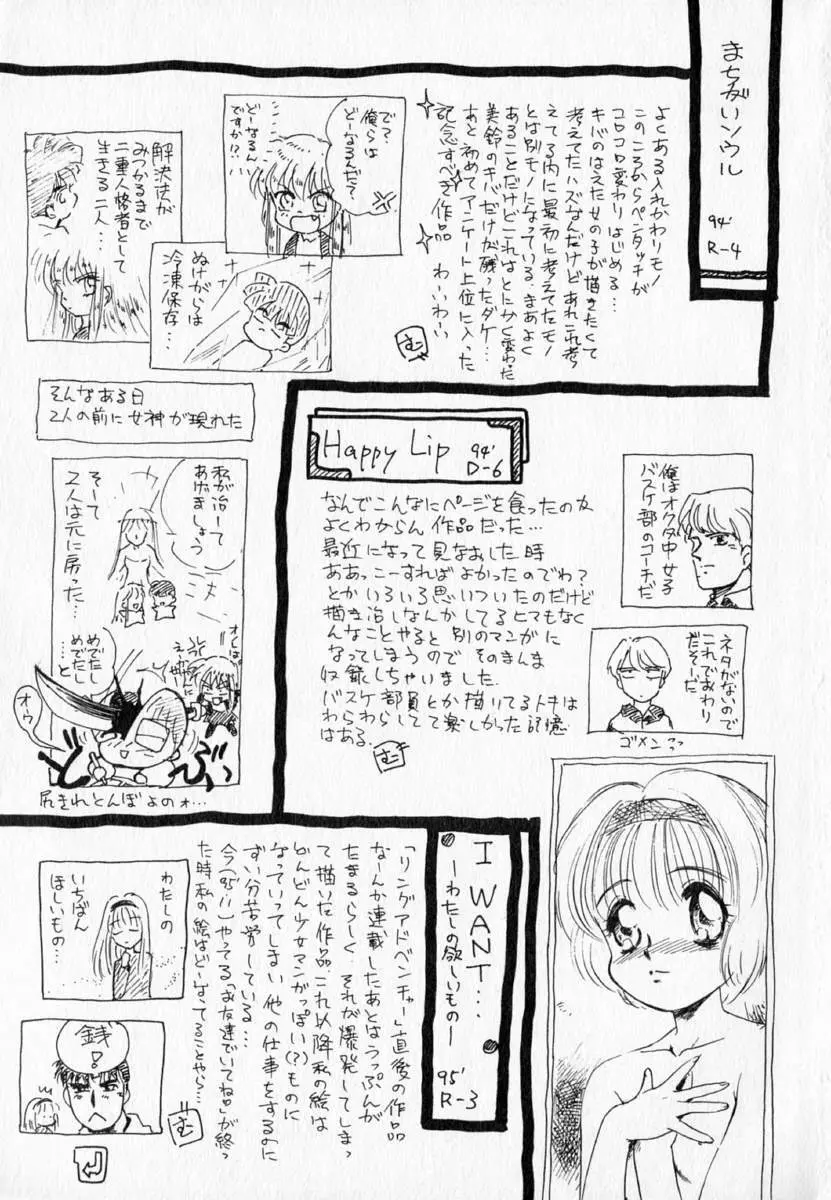 まちがいソウル
94'
R-4
よくある入れかわりモノ
このころからペンタッチが
コロコロ変わりはじめる…
キバのはえた女の子が描きたくて
考えてたハズなんだけどあれこれ考
えてる内に最初に考えてたモノ
とは別モノになっている。まあよく
あることだけどこれはとにかく変わった
美鈴のキバだけが残ったダケ…
あと初めてアンケート上位に入った
記念すべき作品　わーいわーい
む
で?
俺らは
どーなるんだ?
どーなるん
ですか!?
ぬけがらは
冷凍保存…
解決法が
みつかるまで
二重人格者として
生きる二人…
そんなある日
2人の前に女神が現れた
私が治して
あげましょう
そして
2人は元に戻った…
めでたし
めでたし
…と
オウ
尻きれとんぼよのォ…
Happy Lip
94'
D-6
なんでこんなにページを食ったのか
よくわからん作品だった…
最近になって見なおした時
ああっこーすればよかったのでわ?
とかいろいろ思いついたのだけど
描き治しなんかしてるヒマもなく
んなことやると別のマンガに
なってしまうのでそのまんま
収録しちゃいました。
バスケ部員とか描いてるトキは
わらわらしてて楽しかった記憶
はある。
む
俺はオクタ中女子
バスケ部のコーチだ
ネタがないので
これでおわり
だそーだ
ゴメンっっ
I WANT…
―わたしの欲しいもの―
95'
R-3
「リングアドベンチャー」直後の作品
なーんか連載したあとはうっぷんが
たまるらしく、それが爆発してしまっ
て描いた作品。これ以降私の絵は
どんどん少女マンガっぽい(?)ものに
なっていってしまい他の仕事をするのに
ずい分苦労している…
今(95'11)やってる「お友達でいてね」が終っ
た時私の絵はどーなってることやら…
む
わたしの
いちばん
ほしいもの…
銭!